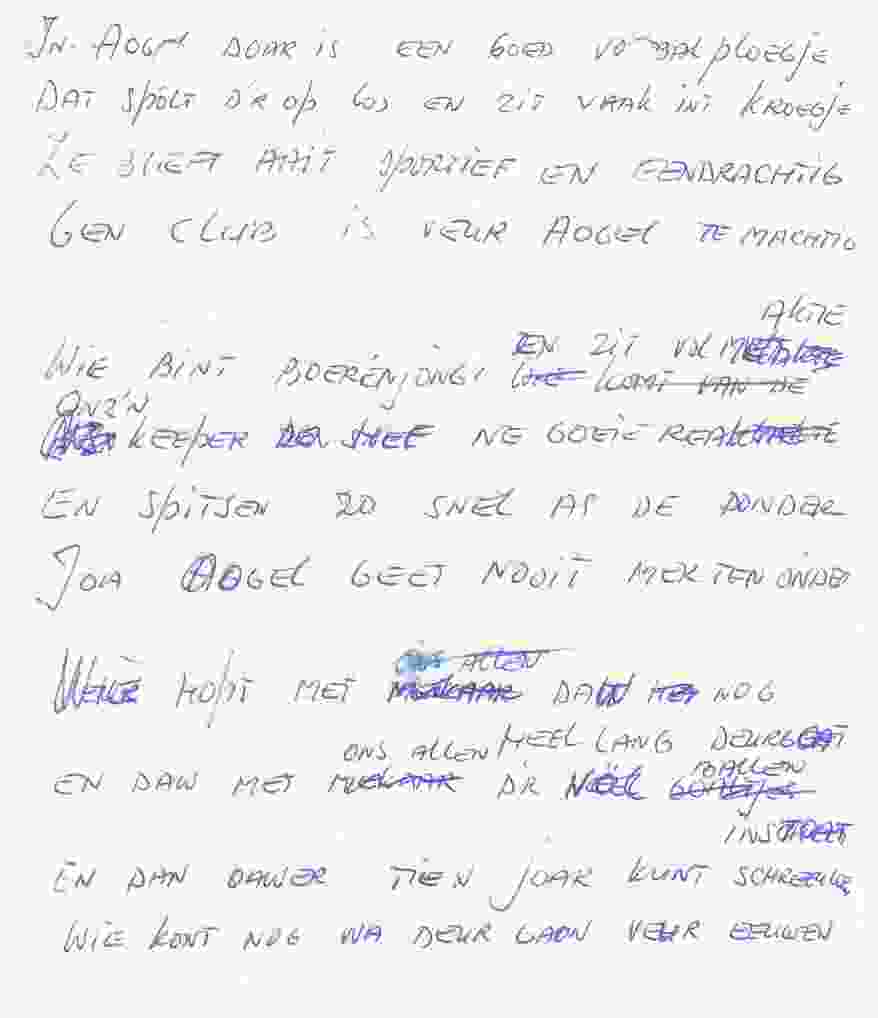 IN AOGEL DOAR IS EEN GOED VOETBALPLOEGJE
DAT SPÖLT D'R OP LOS EN ZIT VAAK INT KROEGJE
ZE BLIEFT ALTIT SPORTIEF EN EENDRACHTIG
GEN CLUB IS VEUR AOGEL TE MACHTIG
AKTIE
EN ZIT VOL MET
WIE BINT BOERENJONGS WIE KOMT VAN DE
ONZ'N
KEEPER DEN HEF NE GOEIE REAKTIE
EN SPITSEN ZO SNEL AS DE DONDER
JOA AOGEL GEET NOOIT MEKTEN ONDER
WEILE HOPT MET MEKAAR DAW NOG
ONS ALLEN
ONS ALLEN HEEL LANG DEURGOAT
EN DAW MET MEKAAR D'R NÖEL
BALLEN
INSCHOET
EN DAN OAWER TIEN JOAR KUNT SCHREEUWE
WIE KONT NOG WA DEUR GAON VEUR EEUWEN